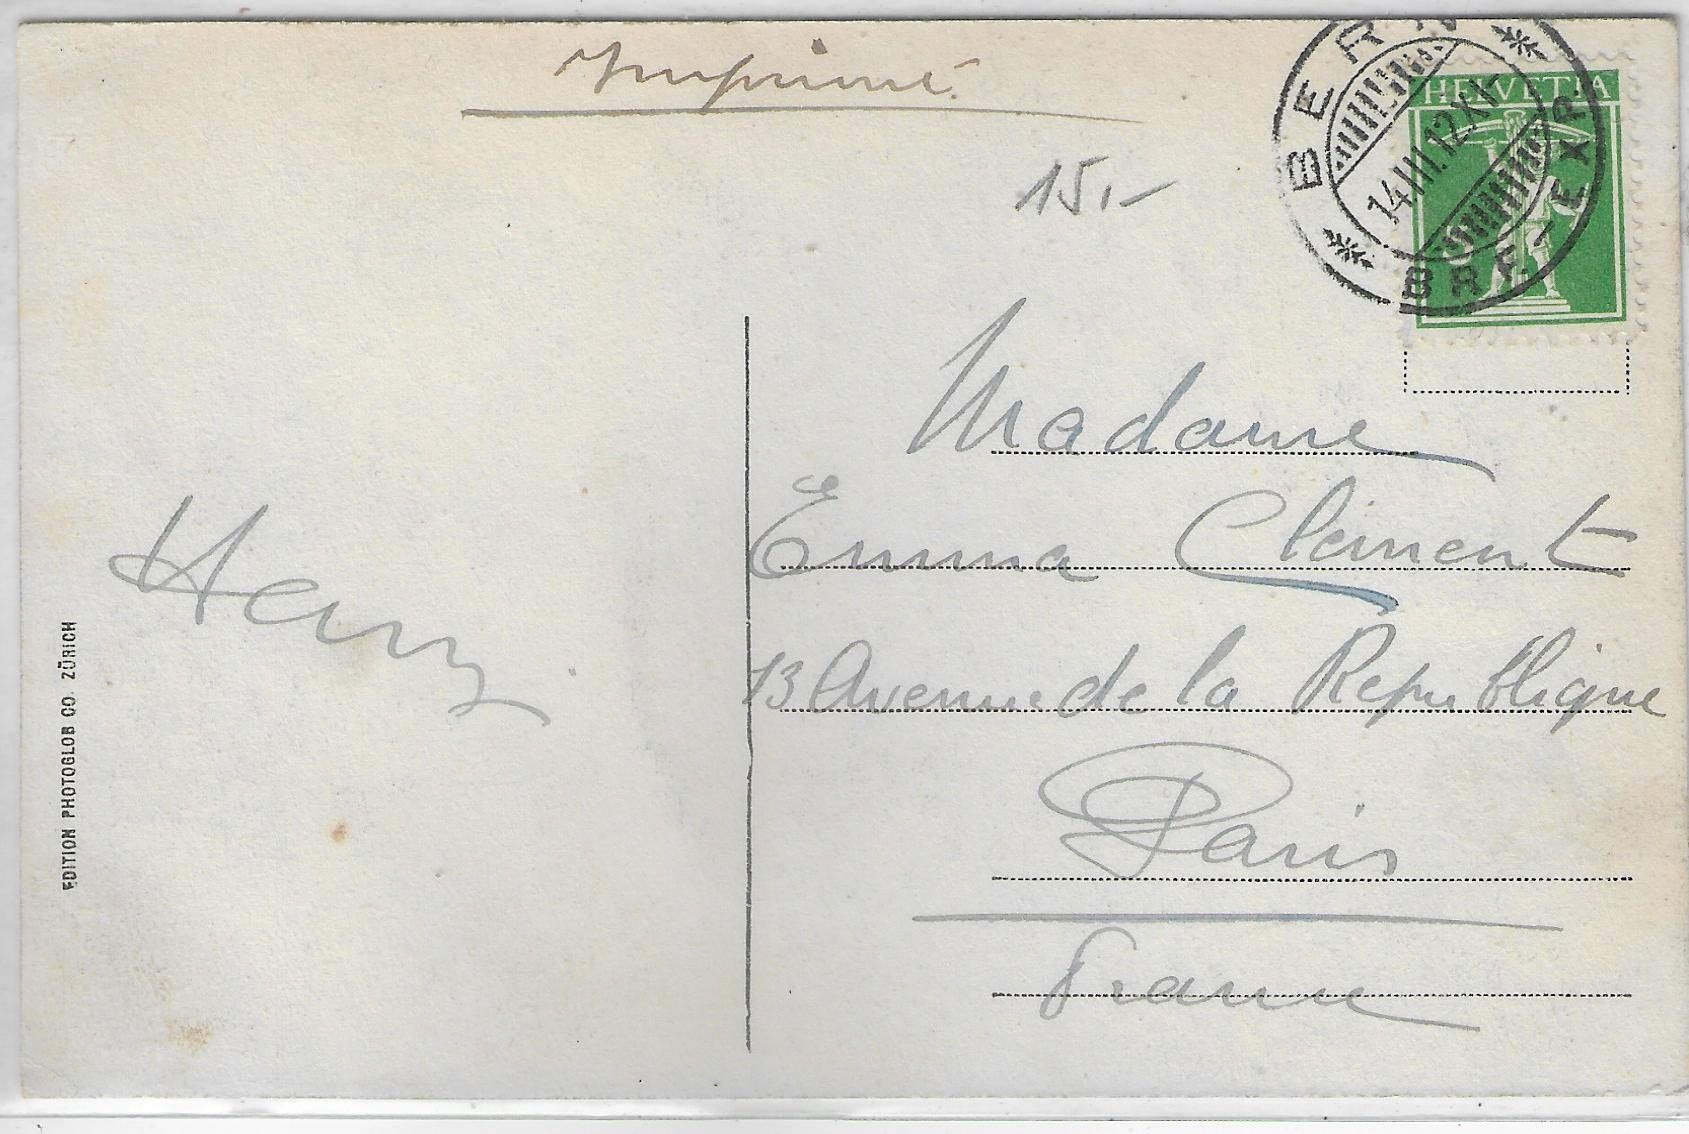 Imprimé
15.-
BERN
14.III.12.XI-
BRF.-E. R.
HELVETIA
Madame
Emma Clément
13 Avenue de la Republique
Paris
France
Henry
EDITION PHOTOGLOB CO. ZÜRICH